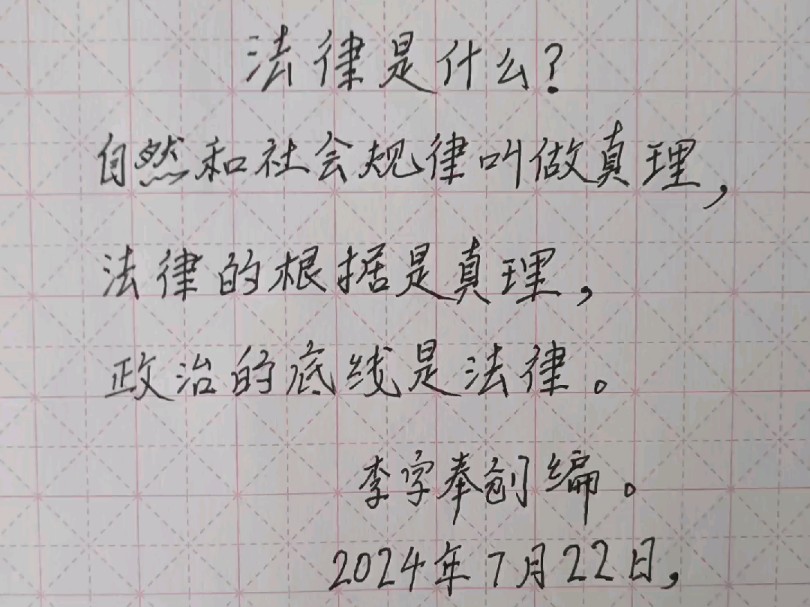 法律是什么?
自然和社会规律叫做真理,
法律的根据是真理,
政治的底线是法律。
李字奉创编。
2024年7月22日,